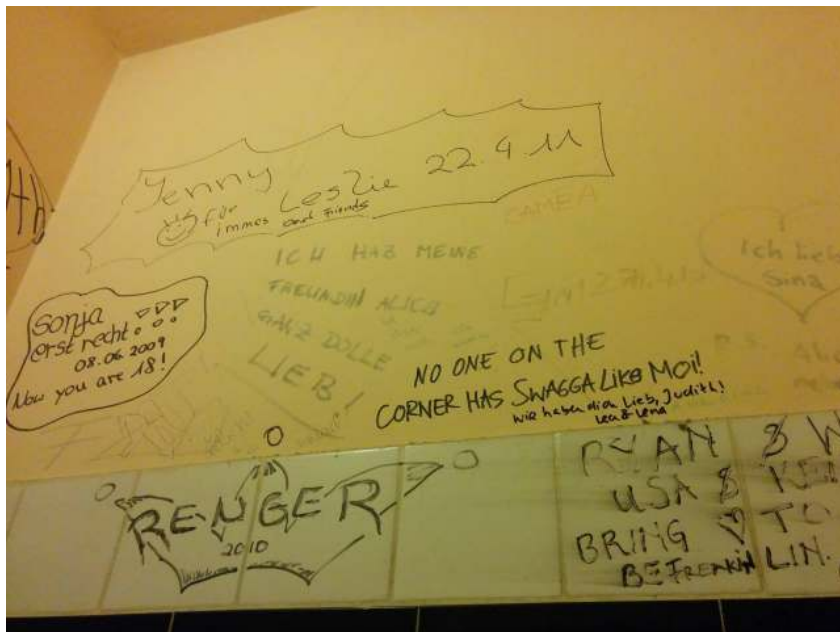 Jenny
für Leslie 22.9.11
immes and Friends
CAMEA
ICH HAB MEINE
FREUNDIN ALICA
GANZ DOLLE
LIEB!
Ich lieb
Sina
P.S.
Sonja
erst recht!!!
08.06.2009
Now you are 18!
NO ONE ON THE
CORNER HAS SWAGGA LIKE MOI!
wir haben dich Lieb, Judith!
Lea & Lena
RENGER
2010
RYAN & W
USA &
BRING ♡ TO
BEFREAKIN LIN.